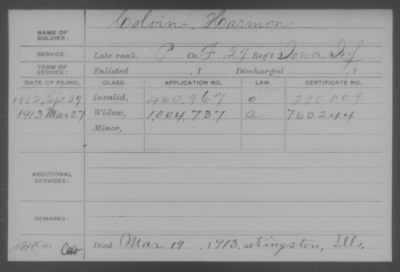 NAME OF SOLDIER: Colvin, Harmon
SERVICE: Late rank, P Co. F, 27 Reg't Iowa Inf
TERM OF SERVICE: Enlisted , 1 Discharged , 1
DATE OF FILING. CLASS. APPLICATION NO. LAW. CERTIFICATE NO.
1882, Sept 29 Invalid, 460,967
1913 Mar 27 Widow, 1,004,737 a 760244
Minor,
ADDITIONAL SERVICES:
REMARKS:
Died Mar 19, 1913, at Kingston, Ills.